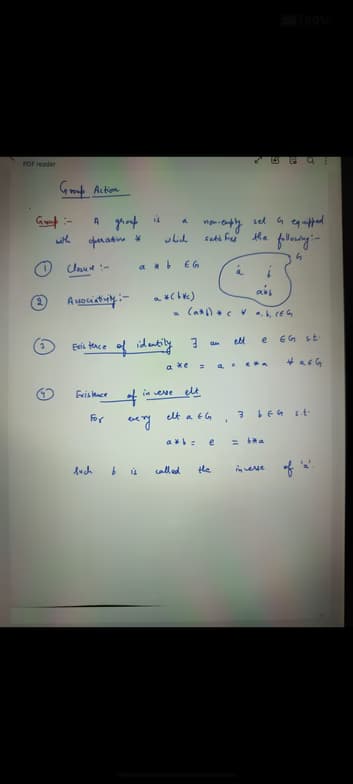 PDF reader
Group Action
Group :- A group is a non-empty set G equipped
with operation * which satisfies the following :-
① Closure :- a * b ∈ G
G
a b
a*b
② Associativity :- a *(b*c)
= (a*b) * c ∀ a, b, c ∈ G
③ Existence of identity ∃ an elt e ∈ G s.t.
a * e = a = e * a ∀ a ∈ G
④ Existence of inverse elt
For every elt a ∈ G , ∃ b ∈ G s.t.
a * b = e = b * a
Such b is called the inverse of 'a'.